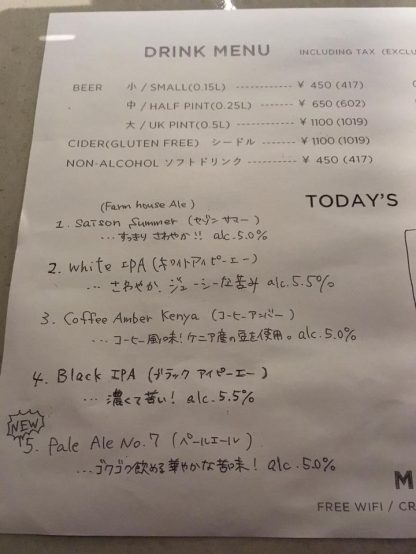 DRINK MENU INCLUDING TAX (EXCLU
BEER 小 / SMALL(0.15L) ------------ ¥ 450 (417)
中 / HALF PINT(0.25L) ------- ¥ 650 (602)
大 / UK PINT(0.5L) ----------- ¥ 1100 (1019)
CIDER(GLUTEN FREE) シードル -------- ¥ 1100 (1019)
NON-ALCOHOL ソフトドリンク ---------- ¥ 450 (417)
TODAY'S
(Farm house Ale)
1. Saison Summer (セゾン サマー)
...すっきり さわやか!! alc.5.0%
2. White IPA (ホワイトアイピーエー)
... さわやか、ジューシーな苦み alc.5.5%
3. Coffee Amber Kenya (コーヒーアンバー)
... コーヒー風味! ケニア産の豆を使用。alc.5.0%
4. Black IPA (ブラック アイピーエー)
... 濃くて苦い! alc.5.5%
NEW
5. Pale Ale No.7 (ペールエール)
...ゴクゴク飲める華やかな苦味! alc.5.0%
M
FREE WIFI / CR